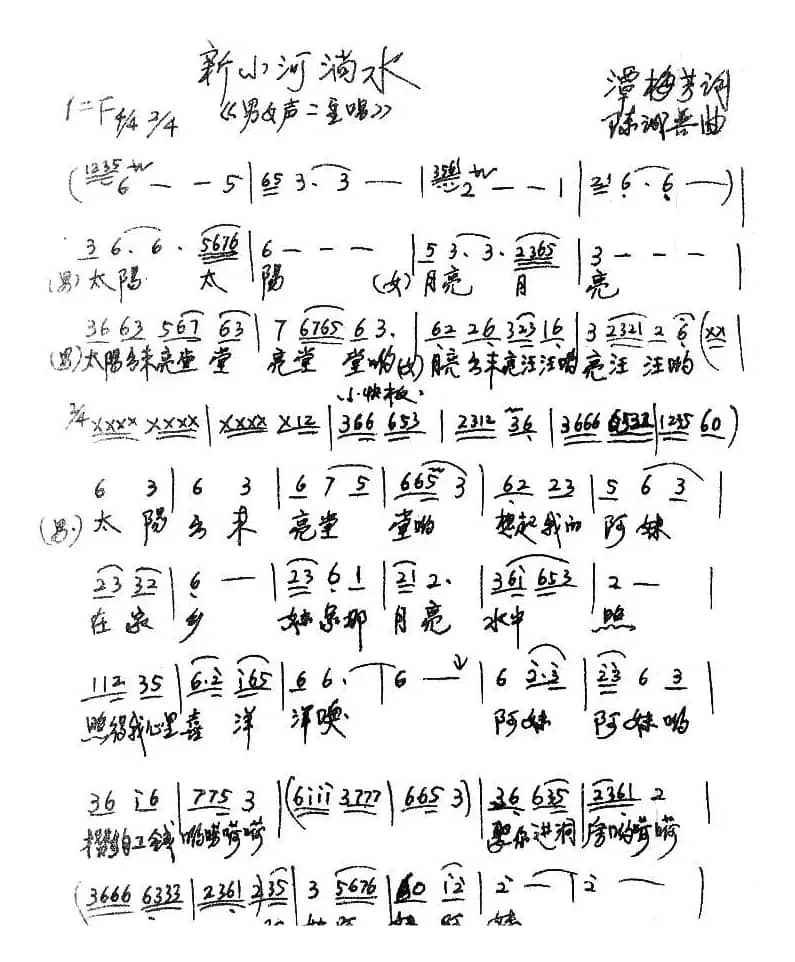 新小河淌水
《男女声二重唱》
潭梅芳词
1=F 4/4 3/4
陈河善曲
(1235 6 — — 5 | 65 3. 3 — | 3561 2 — — 1 | 21 6. 6 — )|
3 6. 6. 5676 | 6 — — — | 5 3. 3. 2365 | 3 — — — |
(男)太陽 太 陽 (女)月亮 月 亮
36 63 567 63 | 7 6765 6 3. | 62 26 323 16 | 3 2321 2 6 (xx |
(男)太陽出来亮堂堂 亮堂堂哟(女)月亮出来亮汪汪哟亮汪汪哟
小快板
2/4 xxxx xxxx | xxxx x12 | 366 653 | 2312 36 | 3666 6532 | 1235 60 )
6 3 | 6 3 | 6 7 5 | 665 3 | 62 23 | 5 6 3 |
(男.太陽出来亮堂堂哟想起我的阿妹
23 32 | 6 — | 23 6 1 | 21 2. | 36i 653 | 2 — |
在家乡 妹是那月亮水中照
112 35 | 6.2 i65 | 6 6. | 6 — | 6 2.3 | 23 6 3 |
照得我心里喜洋洋噢 阿妹 阿妹哟
36 i6 | 775 3 | (6iii 3777 | 665 3) | 36 635 | 2361 2 |
工钱哟 娶你进洞房哟
(3666 6333 | 2361 2) 35 | 3 5676 | 60 i2 | 2 — | 2 — |